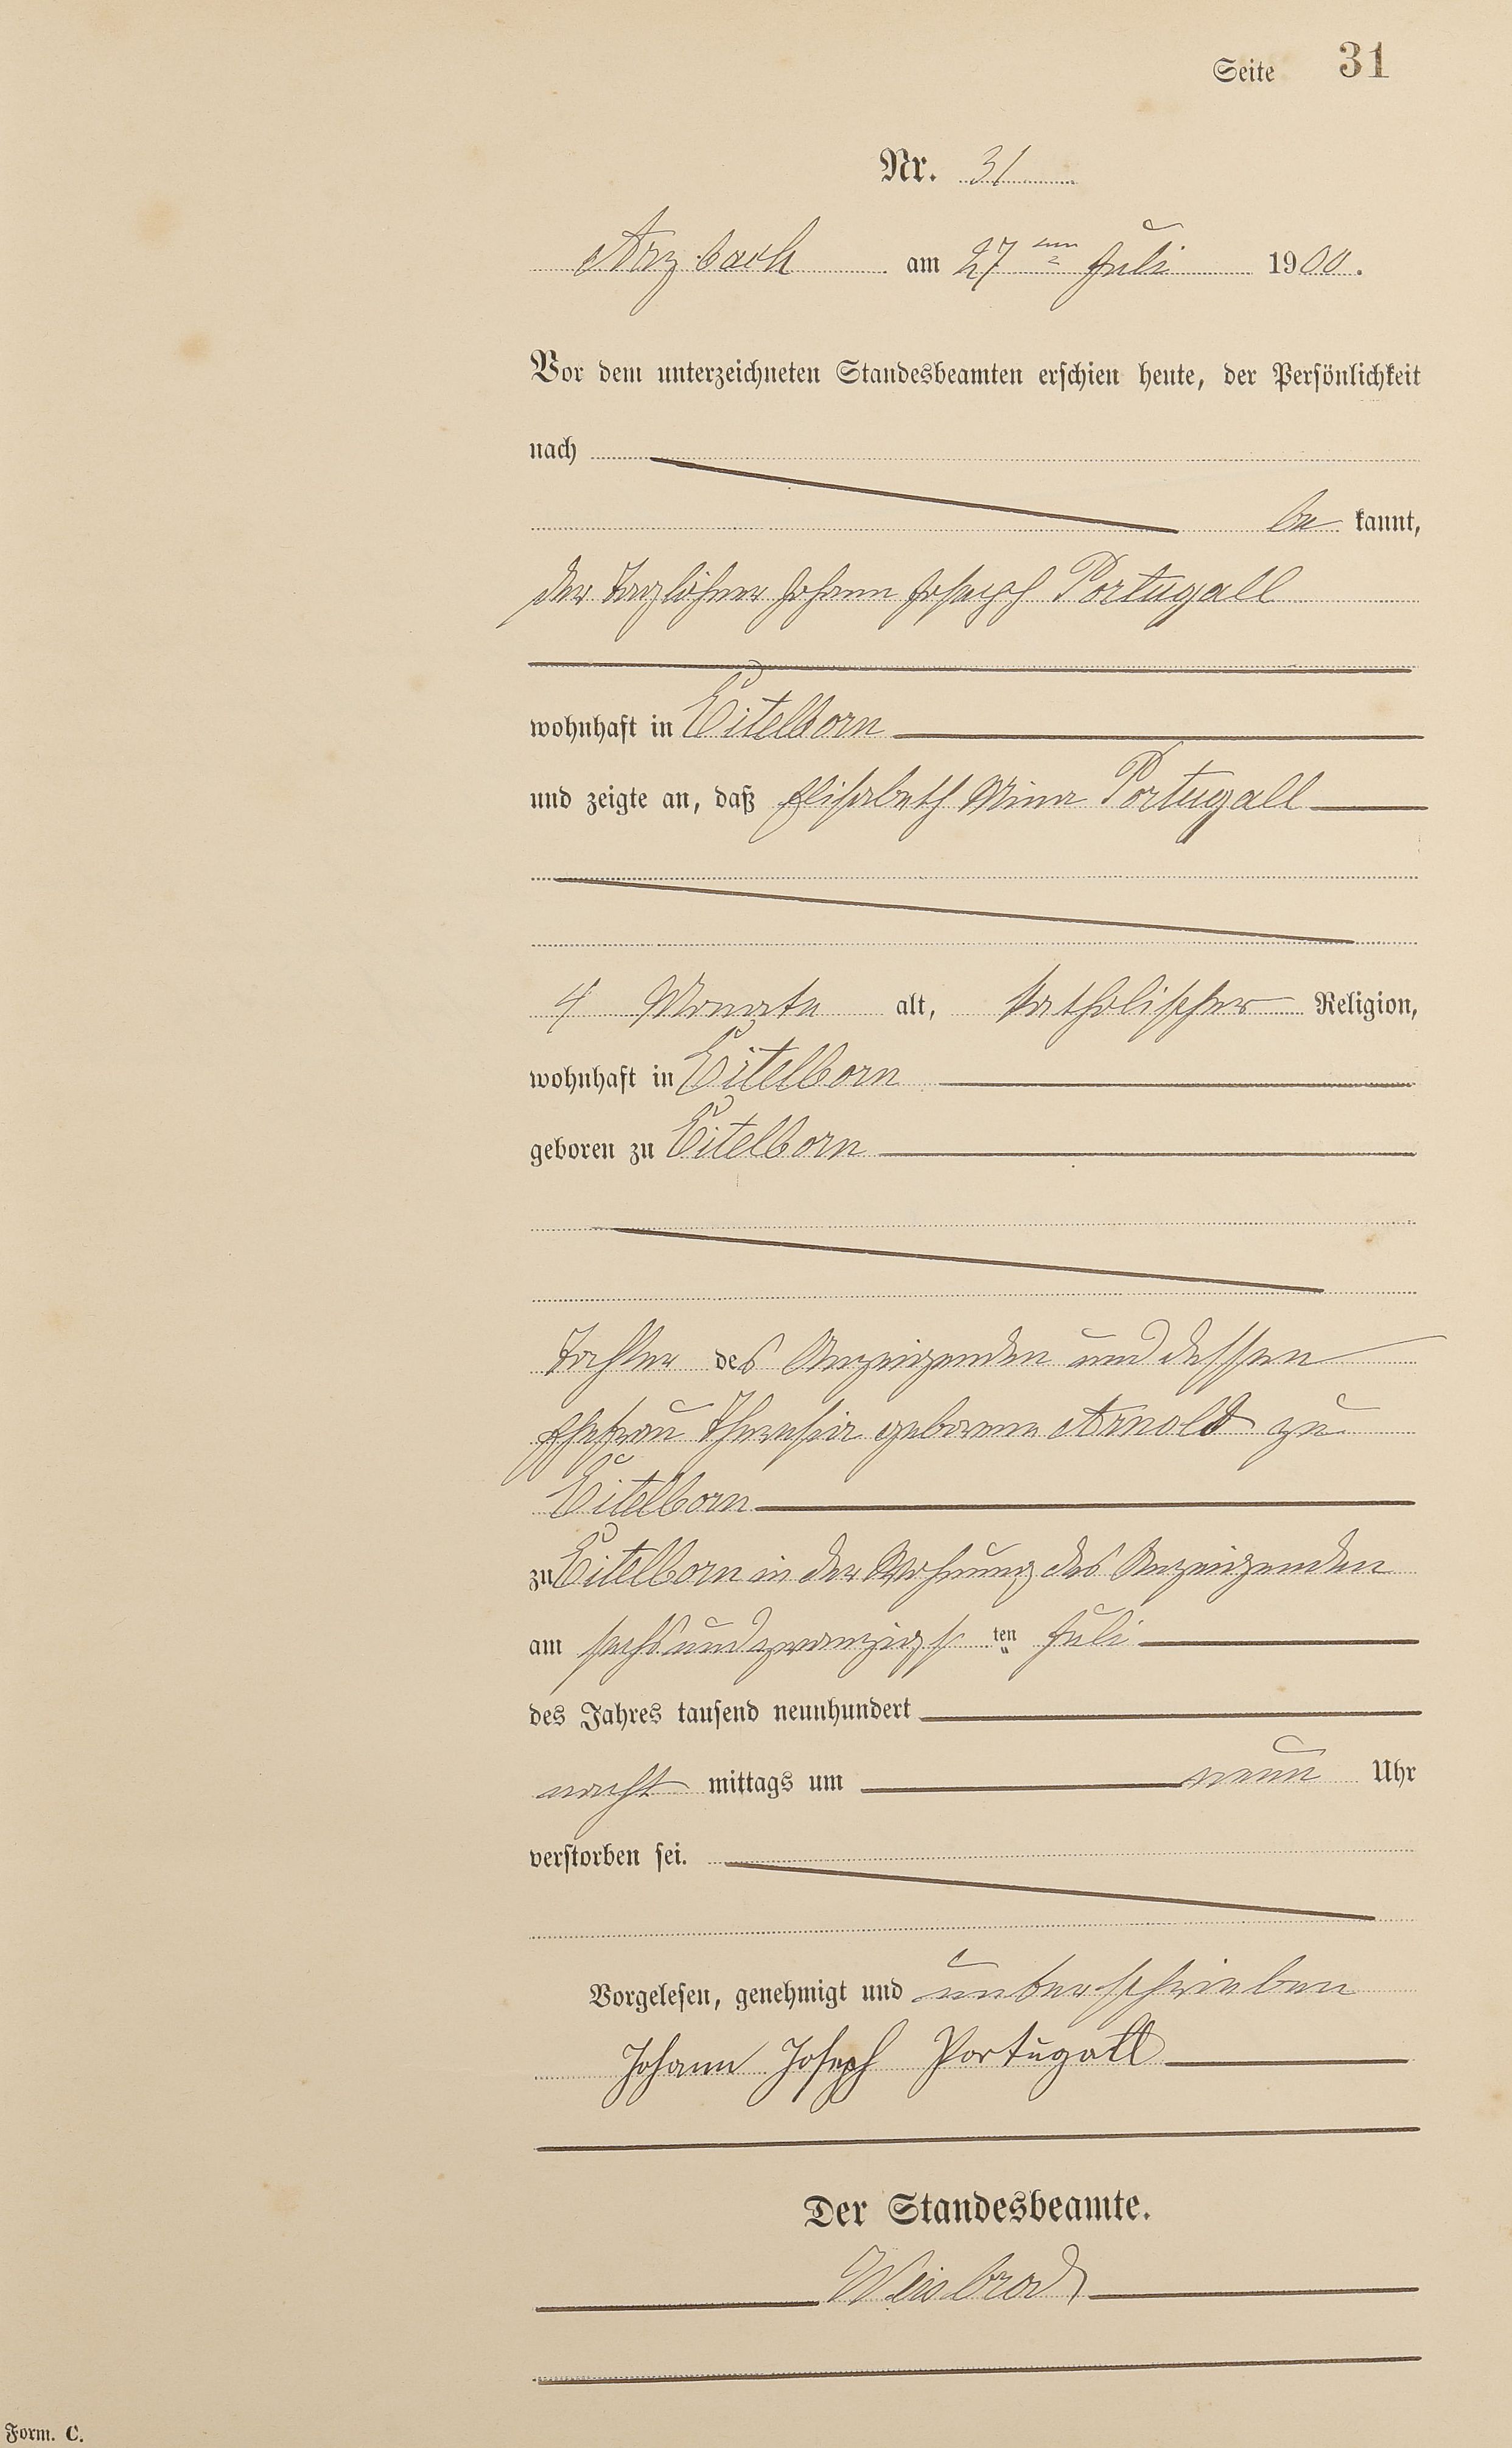 Seite 31
Nr. 31
Arzbach am 27ten Juli 1900.
Vor dem unterzeichneten Standesbeamten erschien heute, der Persönlichkeit
nach
be kannt,
der Taglöhner Johann Joseph Portugall
wohnhaft in Eitelborn
und zeigte an, daß Elisabeth Mina Portugall
4 Monate alt, katholischer Religion,
wohnhaft in Eitelborn
geboren zu Eitelborn
Tochter des Anzeigenden und dessen
Ehefrau Theresia geborene Arnold zu
Eitelborn
zu Eitelborn in der Wohnung des Anzeigenden
am sechsundzwanzigsten Juli
des Jahres tausend neunhundert
nach mittags um neun Uhr
verstorben sei.
Vorgelesen, genehmigt und unterschrieben
Johann Joseph Portugall
Der Standesbeamte.
Weisbrod
Form. C.